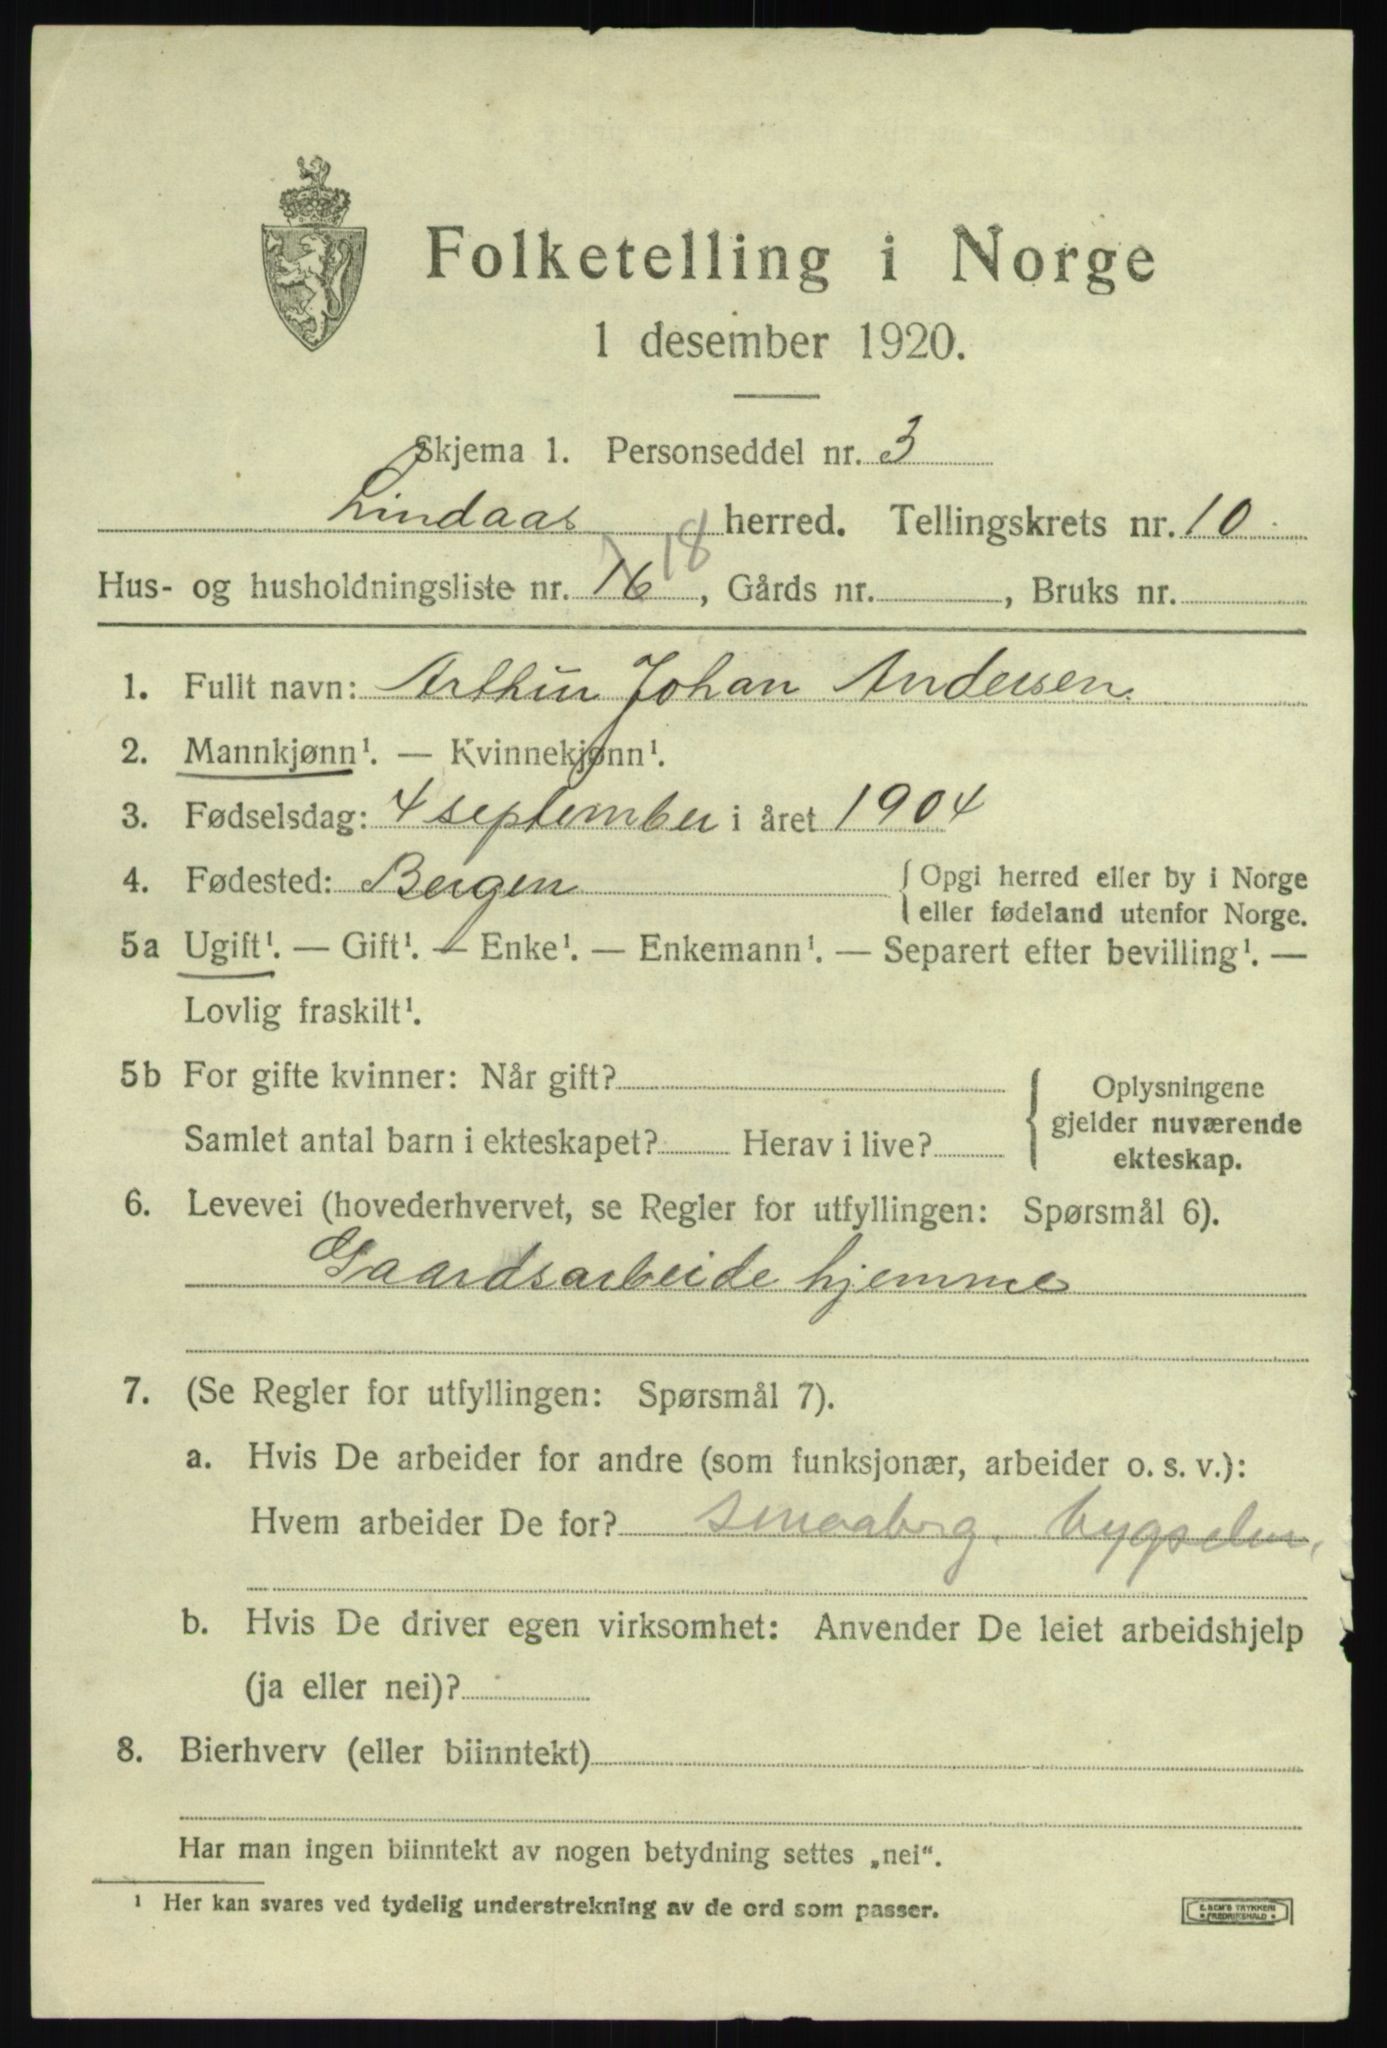 Folketelling i Norge
1 desember 1920.
Skjema 1. Personseddel nr. 3
Lindaas herred. Tellingskrets nr. 10
18
Hus- og husholdningsliste nr. 16, Gårds nr. , Bruks nr.
1. Fullt navn: Arthur Johan Andersen.
2. Mannkjønn¹. — Kvinnekjønn¹.
3. Fødselsdag: 4 september i året 1904
4. Fødested: Bergen { Opgi herred eller by i Norge
eller fødeland utenfor Norge.
5a Ugift¹. — Gift¹. — Enke¹. — Enkemann¹. — Separert efter bevilling¹. —
Lovlig fraskilt¹.
5b For gifte kvinner: Når gift?
Samlet antal barn i ekteskapet? Herav i live?
{ Oplysningene
gjelder nuværende
ekteskap.
6. Levevei (hovederhvervet, se Regler for utfyllingen: Spørsmål 6).
Gaardsarbeide hjemme
7. (Se Regler for utfyllingen: Spørsmål 7).
a. Hvis De arbeider for andre (som funksjonær, arbeider o. s. v.):
Hvem arbeider De for? smaaberg.
b. Hvis De driver egen virksomhet: Anvender De leiet arbeidshjelp
(ja eller nei)?
8. Bierhverv (eller biinntekt)
Har man ingen biinntekt av nogen betydning settes „nei“.
¹ Her kan svares ved tydelig understrekning av de ord som passer.